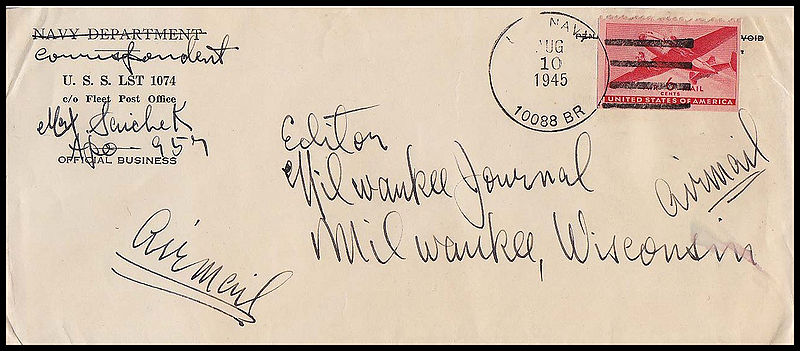 NAVY DEPARTMENT
correspondent
U. S. S. LST 1074
c/o Fleet Post Office
Apo 957
OFFICIAL BUSINESS
NAVY
AUG
10
1945
10088 BR
6
CENTS
UNITED STATES OF AMERICA
VOID
Editor
Milwaukee Journal
Milwaukee, Wisconsin
airmail
Airmail